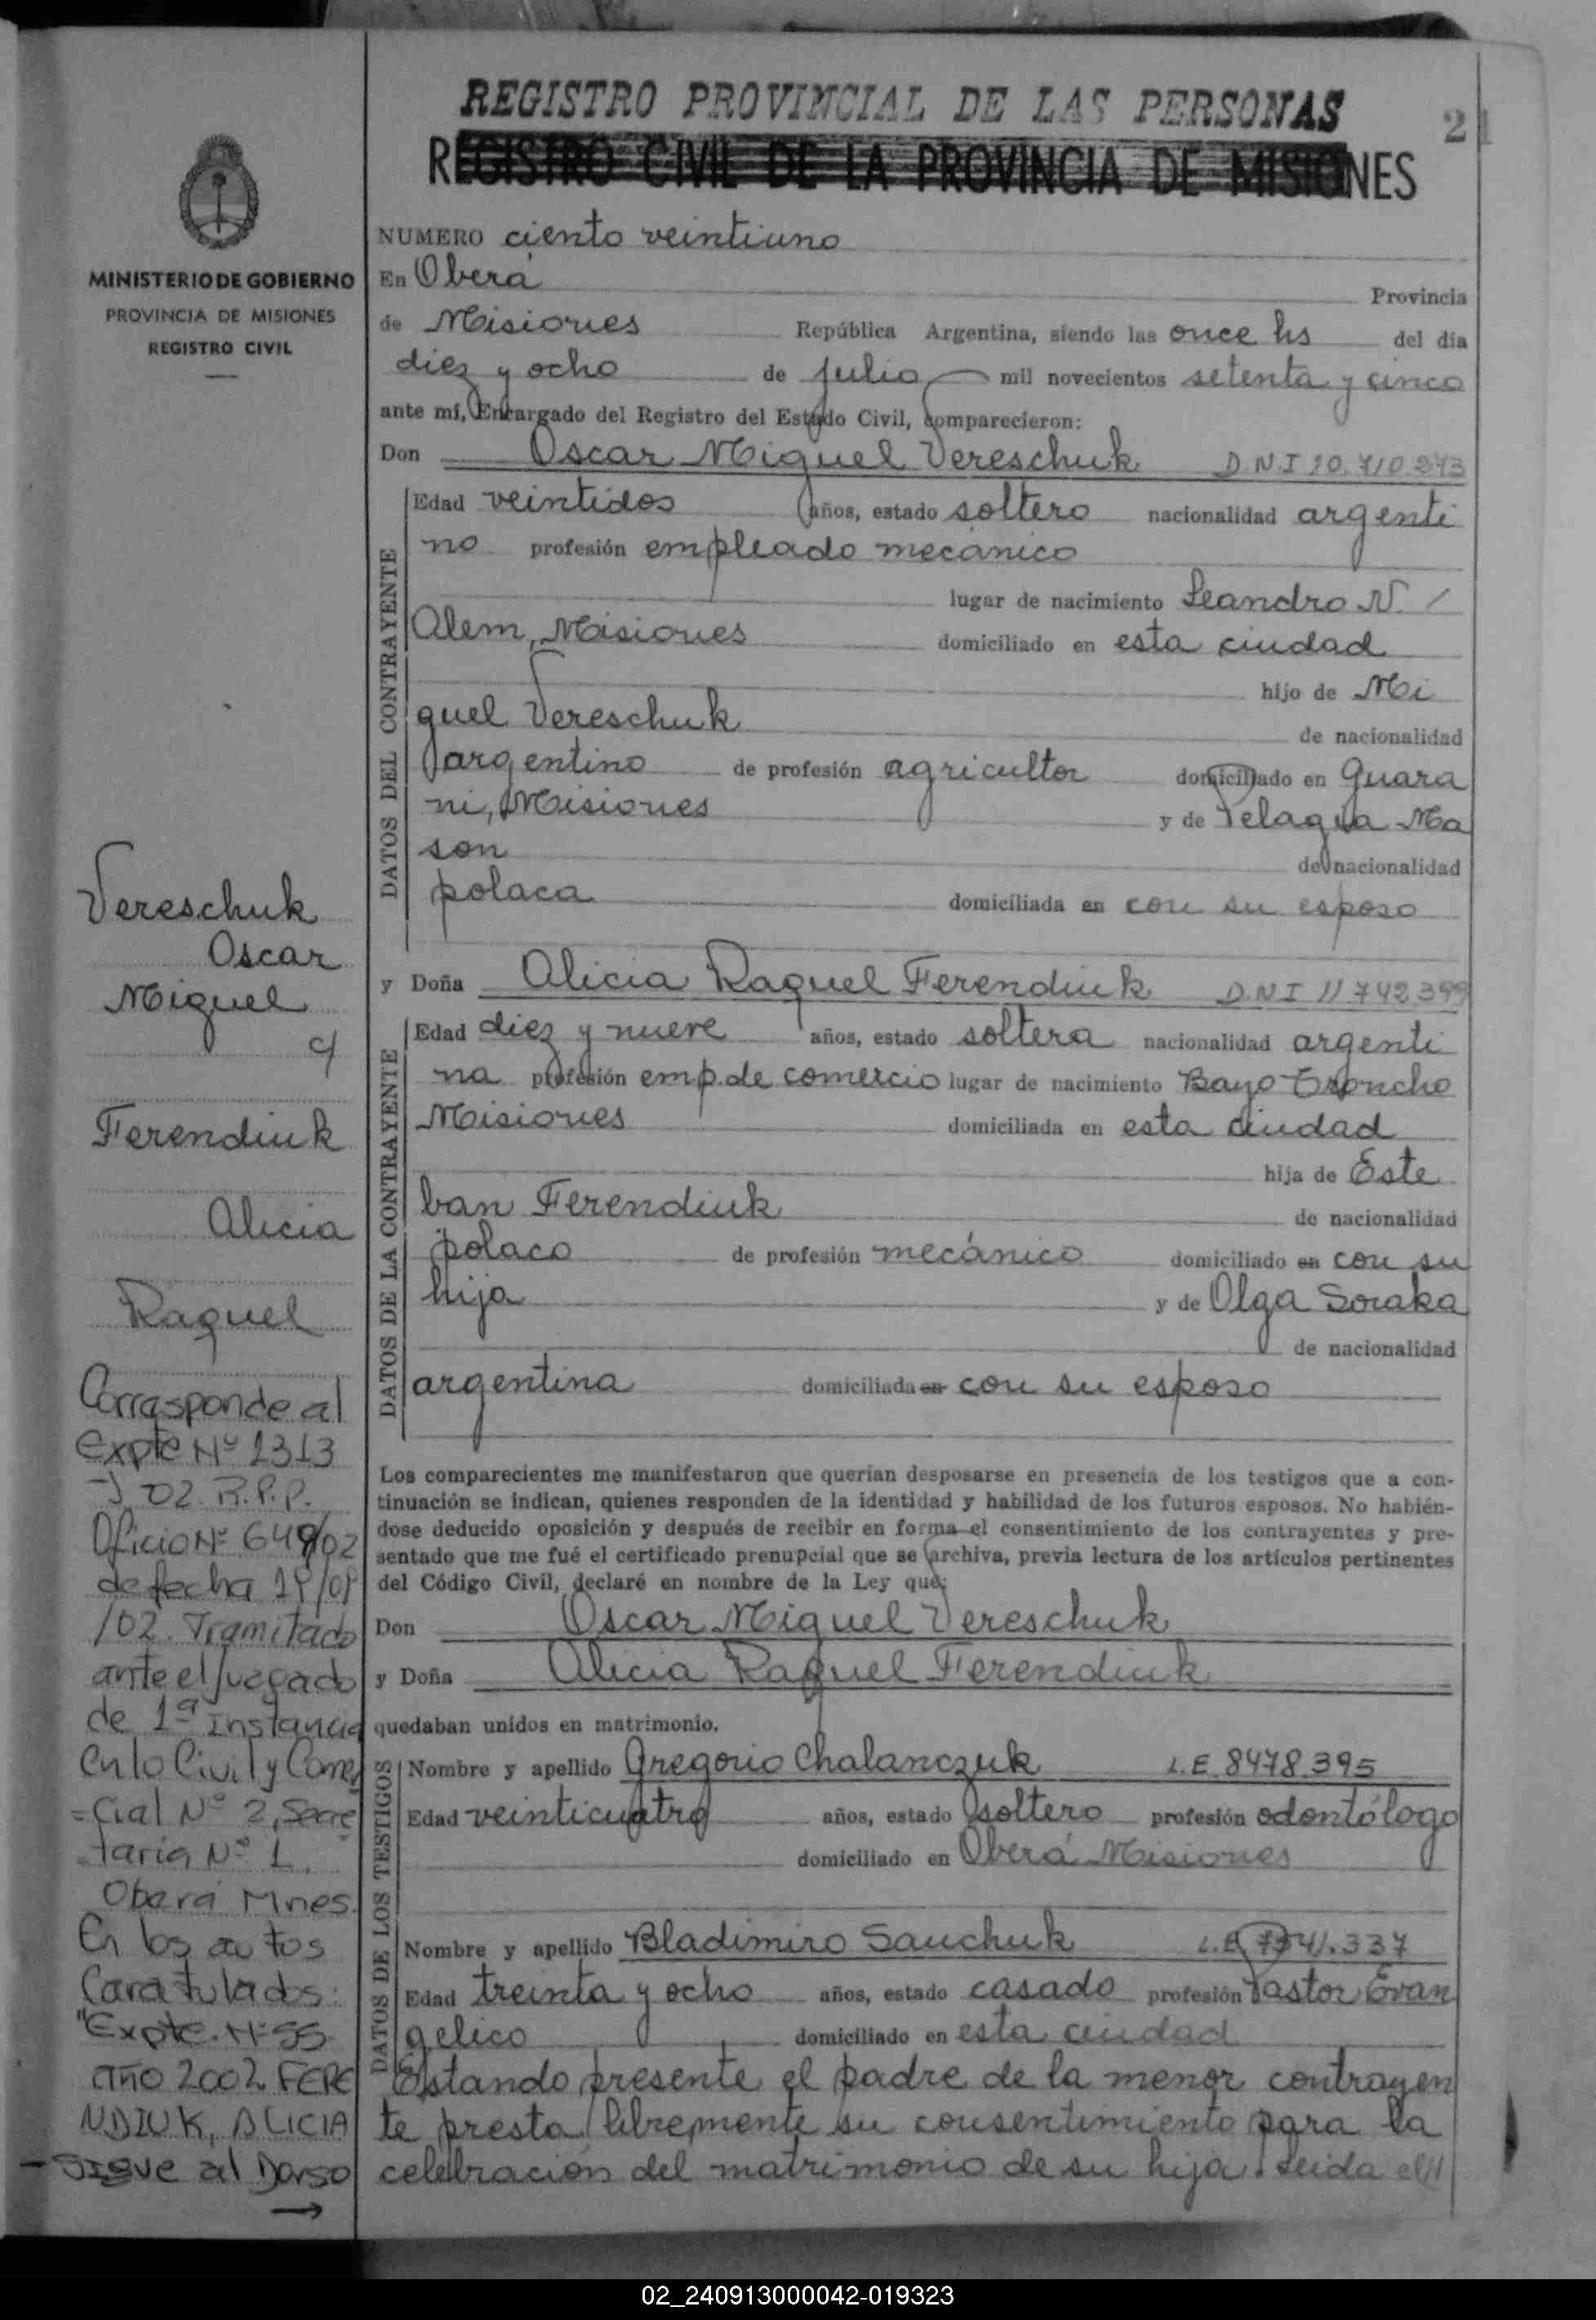 REGISTRO PROVINCIAL DE LAS PERSONAS
21
REGISTRO CIVIL DE LA PROVINCIA DE MISIONES
MINISTERIO DE GOBIERNO
PROVINCIA DE MISIONES
REGISTRO CIVIL
NUMERO ciento veintiuno
En Oberá Provincia
de Misiones República Argentina, siendo las once hs del día
diez y ocho de julio mil novecientos setenta y cinco
ante mí, Encargado del Registro del Estado Civil, comparecieron:
Don Oscar Miguel Vereschuk D.N.I 10.710.373
DATOS DEL CONTRAYENTE
Edad veintidos años, estado soltero nacionalidad argenti
no profesión empleado mecánico
lugar de nacimiento Leandro N. /
Alem, Misiones domiciliado en esta ciudad
hijo de Mi
guel Vereschuk de nacionalidad
argentino de profesión agricultor domiciliado en Guara
ni, Misiones y de Pelagia Ma
son de nacionalidad
polaca domiciliada en con su esposo
y Doña Alicia Raquel Ferendiuk D.N.I 11742399
DATOS DE LA CONTRAYENTE
Edad diez y nueve años, estado soltera nacionalidad argenti
na profesión emp. de comercio lugar de nacimiento Bayo Troncho
Misiones domiciliada en esta ciudad
hija de Este
ban Ferendiuk de nacionalidad
polaco de profesión mecánico domiciliado en con su
hija y de Olga Soraka
de nacionalidad
argentina domiciliada en con su esposo
Los comparecientes me manifestaron que querían desposarse en presencia de los testigos que a con-
tinuación se indican, quienes responden de la identidad y habilidad de los futuros esposos. No habién-
dose deducido oposición y después de recibir en forma el consentimiento de los contrayentes y pre-
sentado que me fué el certificado prenupcial que se archiva, previa lectura de los artículos pertinentes
del Código Civil, declaré en nombre de la Ley que:
Don Oscar Miguel Vereschuk
y Doña Alicia Raquel Ferendiuk
quedaban unidos en matrimonio.
DATOS DE LOS TESTIGOS
Nombre y apellido Gregorio Chalanczuk L.E. 8478.395
Edad veinticuatro años, estado soltero profesión odontólogo
domiciliado en Oberá Misiones
Nombre y apellido Bladimiro Sauchuk L.E. .337
Edad treinta y ocho años, estado casado profesión Pastor Evan
gelico domiciliado en esta ciudad
Estando presente el padre de la menor contrayen
te presta libremente su consentimiento para la
celebración del matrimonio de su hija. Leida el
Vereschuk
Oscar
Miguel
c/
Ferendiuk
Alicia
Raquel
Corresponde al
Expte Nº 1313
-J 02 R.P.P.
Oficio Nº 649/02
de fecha 19/09
/02. Tramitado
ante el Juzgado
de 1ª Instancia
en lo Civil y Comer
=cial Nº 2, Secre
taria Nº 1.
Oberá Mnes.
En los autos
Caratulados:
"Expte. Nº 55
año 2002 FERE
NDIUK, ALICIA
- Sigue al Dorso
→
02_240913000042-019323